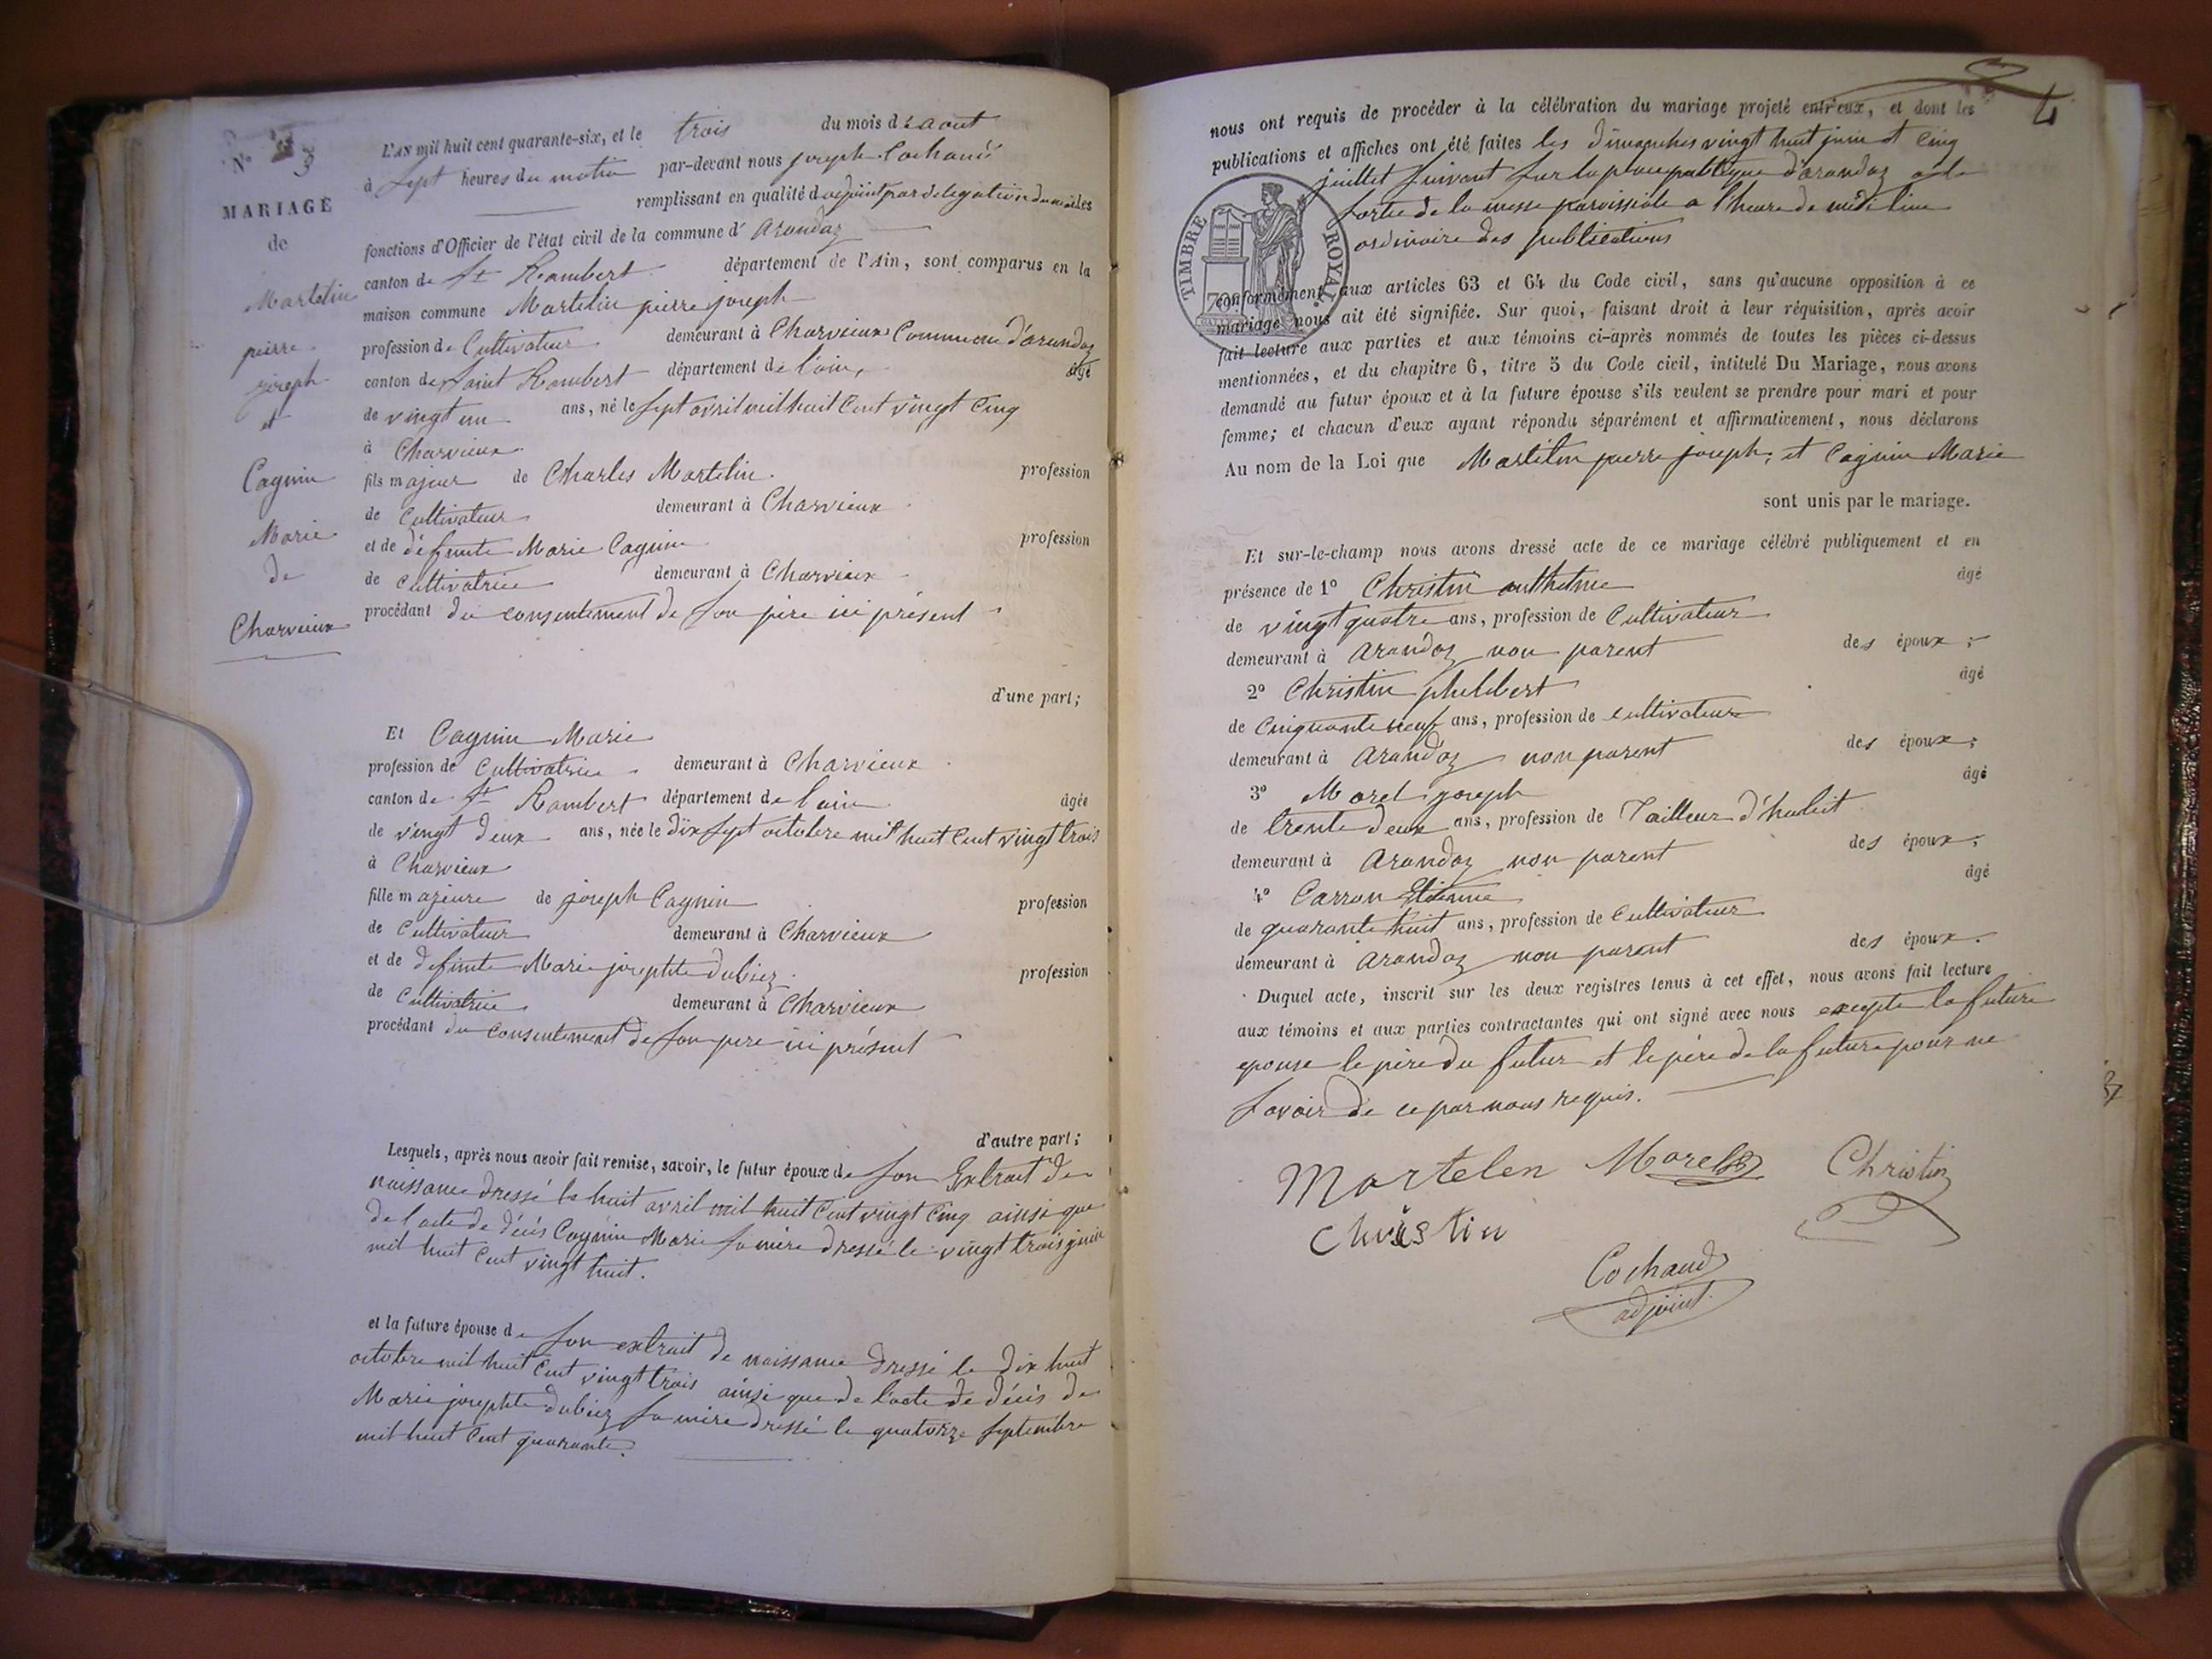 N° 3
MARIAGE
de
Martelin
pierre
joseph
et
Cagnin
Marie
de
Charvieux
L'AN mil huit cent quarante-six, et le trois du mois d'aout
à sept heures du matin par-devant nous joseph Cochaud
remplissant en qualité d'adjoint par délégation du maire les
fonctions d'Officier de l'état civil de la commune d'arandaz
canton de St Rambert département de l'Ain, sont comparus en la
maison commune Martelin pierre joseph
profession de Cultivateur demeurant à Charvieux Commune d'arandaz
canton de Saint Rambert département de l'ain, âgé
de vingt un ans, né le sept avril mil huit cent vingt cinq
à Charvieux
fils majeur de Charles Martelin profession
de Cultivateur demeurant à Charvieux
et de défunte Marie Cagnin profession
de Cultivatrice demeurant à Charvieux
procédant du consentement de son père ici présent
d'une part;
Et Cagnin Marie
profession de Cultivatrice demeurant à Charvieux
canton de St Rambert département de l'ain âgée
de vingt deux ans, née le dix sept octobre mil huit cent vingt trois
à Charvieux
fille majeure de joseph Cagnin profession
de Cultivateur demeurant à Charvieux
et de défunte Marie josephte dubiez profession
de Cultivatrice demeurant à Charvieux
procédant du consentement de son père ici présent
d'autre part;
Lesquels, après nous avoir fait remise, savoir, le futur époux de son Extrait de
naissance dressé le huit avril mil huit cent vingt cinq ainsi que
de l'acte de décès Cagnin Marie sa mère dressé le vingt trois juin
mil huit cent vingt huit.
et la future épouse de son extrait de naissance dressé le dix huit
octobre mil huit cent vingt trois ainsi que de l'acte de décès de
Marie josephte dubiez sa mère dressé le quatorze septembre
mil huit cent quarante.
nous ont requis de procéder à la célébration du mariage projeté entr'eux, et dont les
publications et affiches ont été faites les dimanches vingt huit juin et cinq
juillet suivant sur la place publique d'arandaz a la
sortie de la messe paroissiale a l'heure de midi lieu
ordinaire des publications
TIMBRE ROYAL
conformément aux articles 63 et 64 du Code civil, sans qu'aucune opposition à ce
mariage nous ait été signifiée. Sur quoi, faisant droit à leur réquisition, après avoir
fait lecture aux parties et aux témoins ci-après nommés de toutes les pièces ci-dessus
mentionnées, et du chapitre 6, titre 5 du Code civil, intitulé Du Mariage, nous avons
demandé au futur époux et à la future épouse s'ils veulent se prendre pour mari et pour
femme; et chacun d'eux ayant répondu séparément et affirmativement, nous déclarons
Au nom de la Loi que Martelin pierre joseph, et Cagnin Marie
sont unis par le mariage.
Et sur-le-champ nous avons dressé acte de ce mariage célébré publiquement et en
présence de 1° Christin anthelme âgé
de vingt quatre ans, profession de Cultivateur
demeurant à arandaz non parent des époux;
2° Christin philibert âgé
de Cinquante neuf ans, profession de cultivateur
demeurant à arandaz non parent des époux;
3° Morel joseph âgé
de trente deux ans, profession de Tailleur d'habit
demeurant à arandaz non parent des époux;
4° Carron Etienne âgé
de quarante huit ans, profession de Cultivateur
demeurant à arandaz non parent des époux.
Duquel acte, inscrit sur les deux registres tenus à cet effet, nous avons fait lecture
aux témoins et aux parties contractantes qui ont signé avec nous excepté la future
epouse le père du futur et le père de la future pour ne
savoir de ce par nous requis.
Martelen Morel Christin
Christin
Cochaud
adjoint